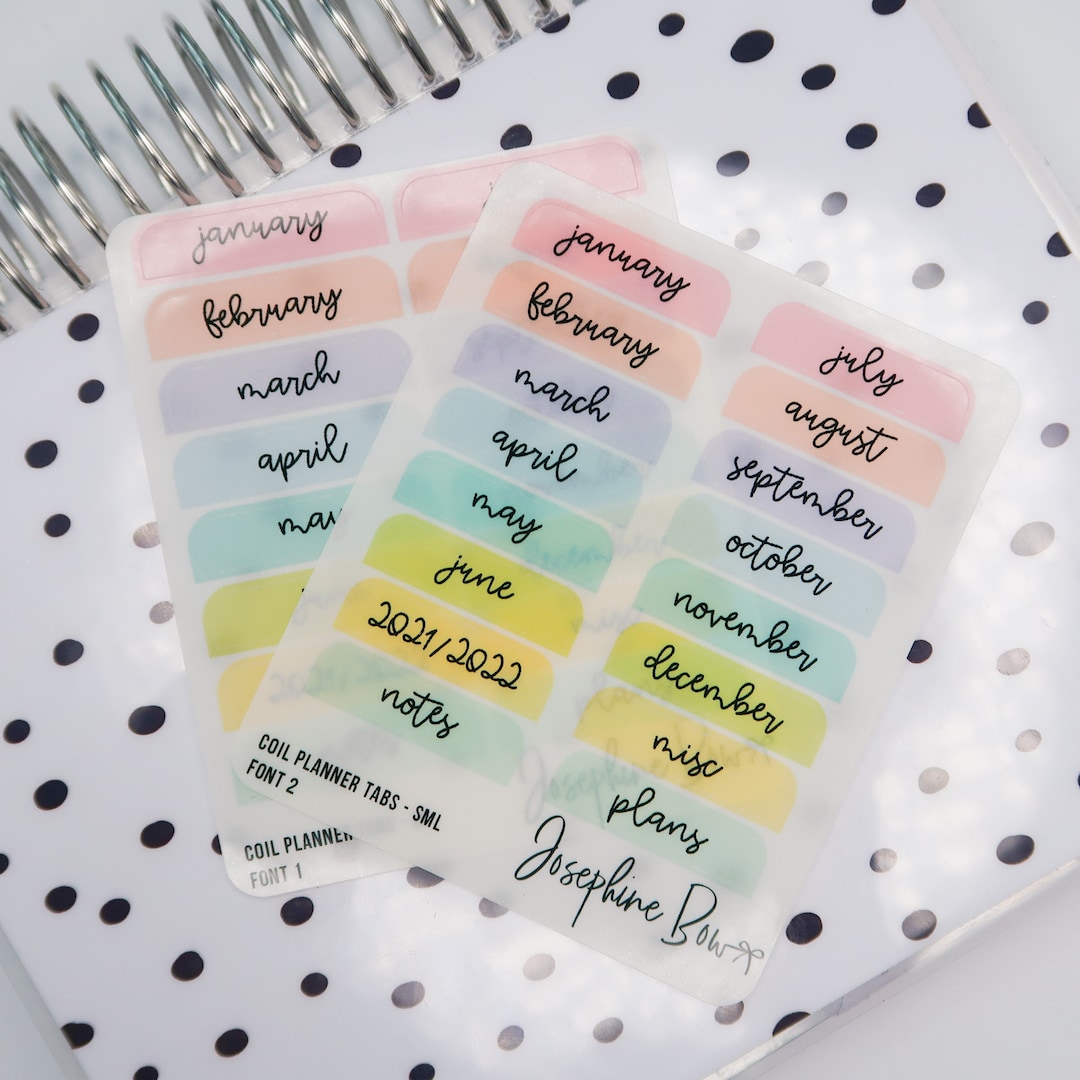 january
february
march
april
may
june
2021/2022
notes
july
august
september
october
november
december
misc
plans
COIL PLANNER TABS - SML
FONT 2
Josephine Bow
january
february
march
april
may
COIL PLANNER
FONT 1